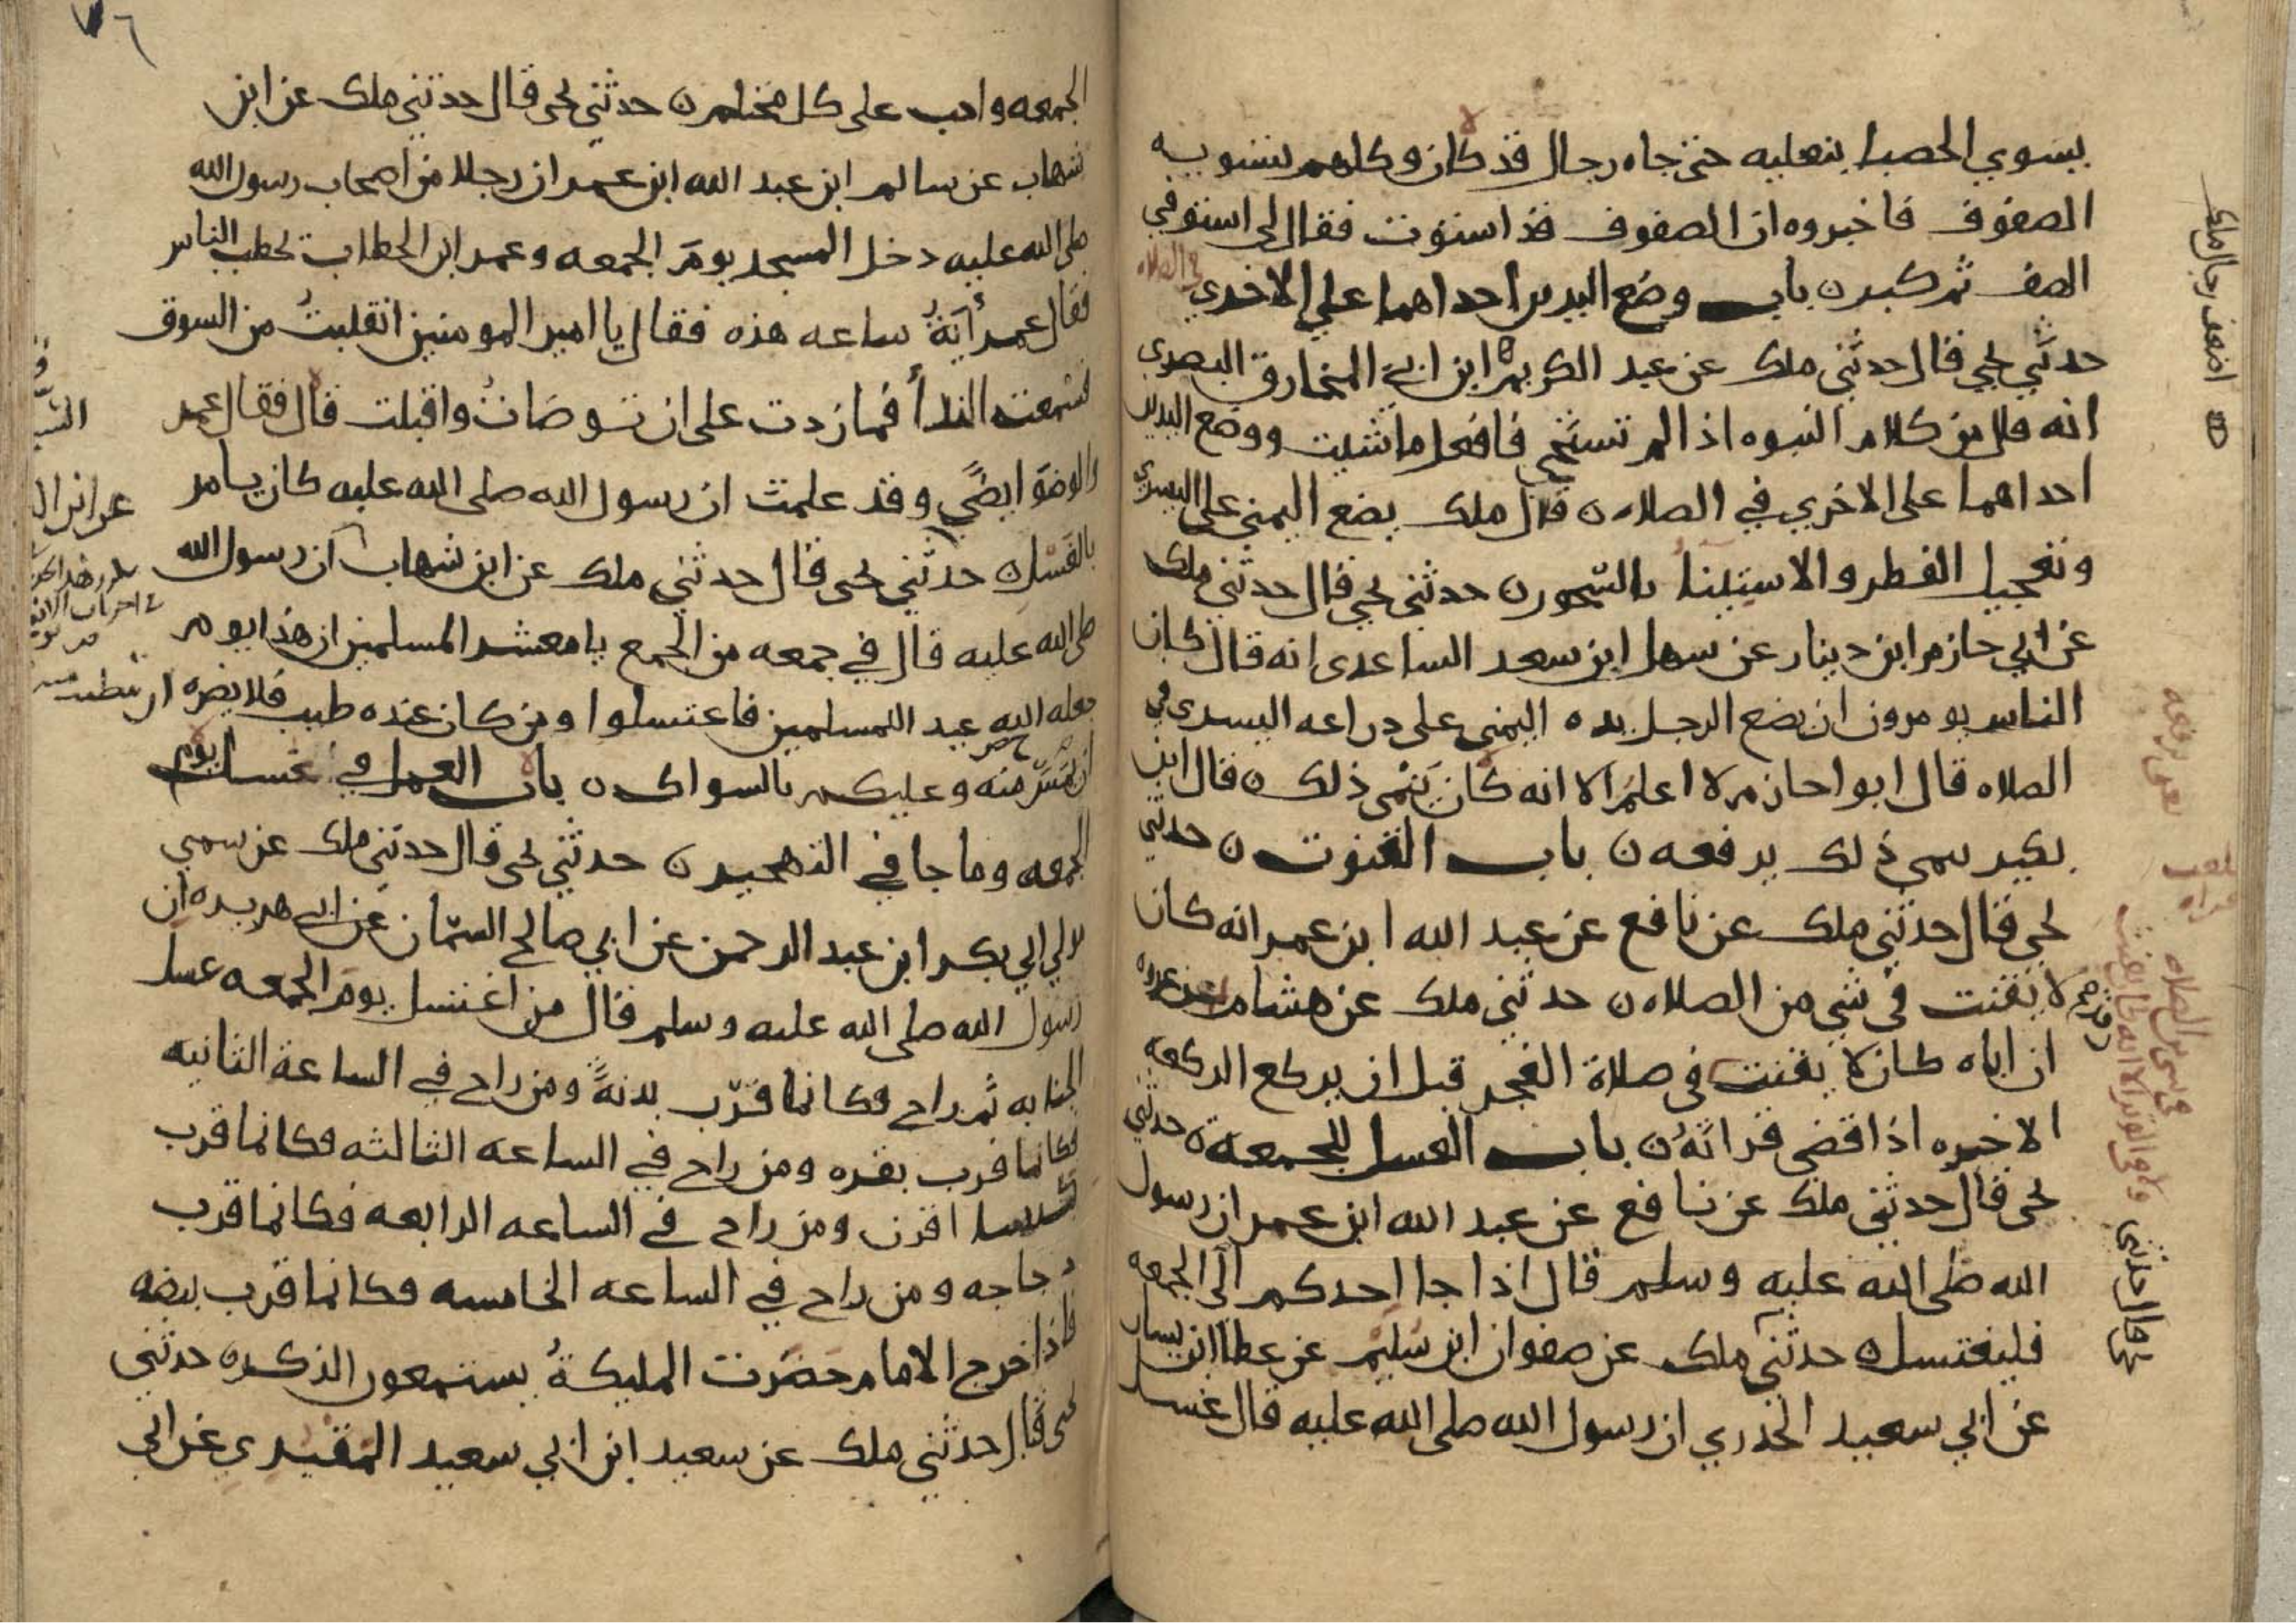 يسوي الحصبا بنعليه حتى جاه رجال قد كان وكلهم بتسويه
الصفوف فاخبروه ان الصفوف قد استوت فقال لي استو في
الصف ثم كبر ن باب وضع اليدين احداهما على الاخرى في الصلاه
حدثني يحيى قال حدثني ملك عن عبد الكريم ابن ابي المخارق البصرى
انه قال من كلام النبوه اذا لم تستحي فافعل ما شيت ووضع اليدين
احداهما على الاخرى في الصلاه ن قال ملك يضع اليمنى على اليسرى
وتعجيل الفطر والاستينا بالسحور ن حدثني يحيى قال حدثني ملك
عن ابي حازم ابن دينار عن سهل ابن سعد الساعدى انه قال كان
الناس يومرون ان يضع الرجل يده اليمنى على دراعه اليسرى في
الصلاه قال ابوا حازم لا اعلم الا انه كان ينمى ذلك ن قال ابن
بكير ينمى ذلك يرفعه ن باب القنوت ن حدثني
يحيى قال حدثني ملك عن نافع عن عبد الله ابن عمر انه كان
لا يقنت في شي من الصلاه ن حدثني ملك عن هشام ابن عروه
ان اباه كان لا يقنت في صلاة الفجر قبل ان يركع الركعه
الاخيره اذا قضى قراته ن باب الغسل للجمعة ن حدثني
يحيى قال حدثني ملك عن نافع عن عبد الله ابن عمر ان رسول
الله صلى الله عليه وسلم قال اذا جا احدكم الى الجمعه
فليغتسل ن حدثني ملك عن صفوان ابن سليم عن عطا ابن يسار
عن ابي سعيد الخدري ان رسول الله صلى الله عليه قال غسل
اضعف رجال ملك
يعنى يرفعه
في شي من الصلاه
قال حدثني
٧٦
الجمعه واجب على كل محتلم ن حدثني يحيى قال حدثني ملك عن ابن
شهاب عن سالم ابن عبد الله ابن عمر ان رجلا من اصحاب رسول الله
صلى الله عليه دخل المسجد يوم الجمعه وعمر ابن الخطاب يخطب الناس
فقال عمر أية ساعه هذه فقال يا امير المومنين انقلبت من السوق
فسمعت الندا فما زدت على ان توضات واقبلت قال فقال عمر
والوضو ايضى وقد علمت ان رسول الله صلى الله عليه كان يامر
بالغسل ن حدثني يحيى قال حدثني ملك عن ابن شهاب ان رسول الله
صلى الله عليه قال في جمعه من الجمع يا معشر المسلمين ان هذا يوم
جعله الله عيد للمسلمين فاغتسلوا ومن كان عنده طيب فلا يضره
ان يمس منه وعليكم بالسواك ن باب العمل في غسل يوم
الجمعه وما جا في التهجير ن حدثني يحيى قال حدثني ملك عن سمي
مولي ابي بكر ابن عبد الرحمن عن ابي صالح السمان عن ابي هريره ان
رسول الله صلى الله عليه وسلم قال من اغتسل يوم الجمعه غسل
الجنابه ثم راح فكانما قرب بدنة ومن راح في الساعة الثانيه
فكانما قرب بقره ومن راح في الساعه الثالثه فكانما قرب
كبشا اقرن ومن راح في الساعه الرابعه فكانما قرب
دجاجه ومن راح في الساعه الخامسه فكانما قرب بيضه
فاذا خرج الامام حضرت المليكة يستمعون الذكر ن حدثني
يحيى قال حدثني ملك عن سعيد ابن ابي سعيد المقبري عن ابي